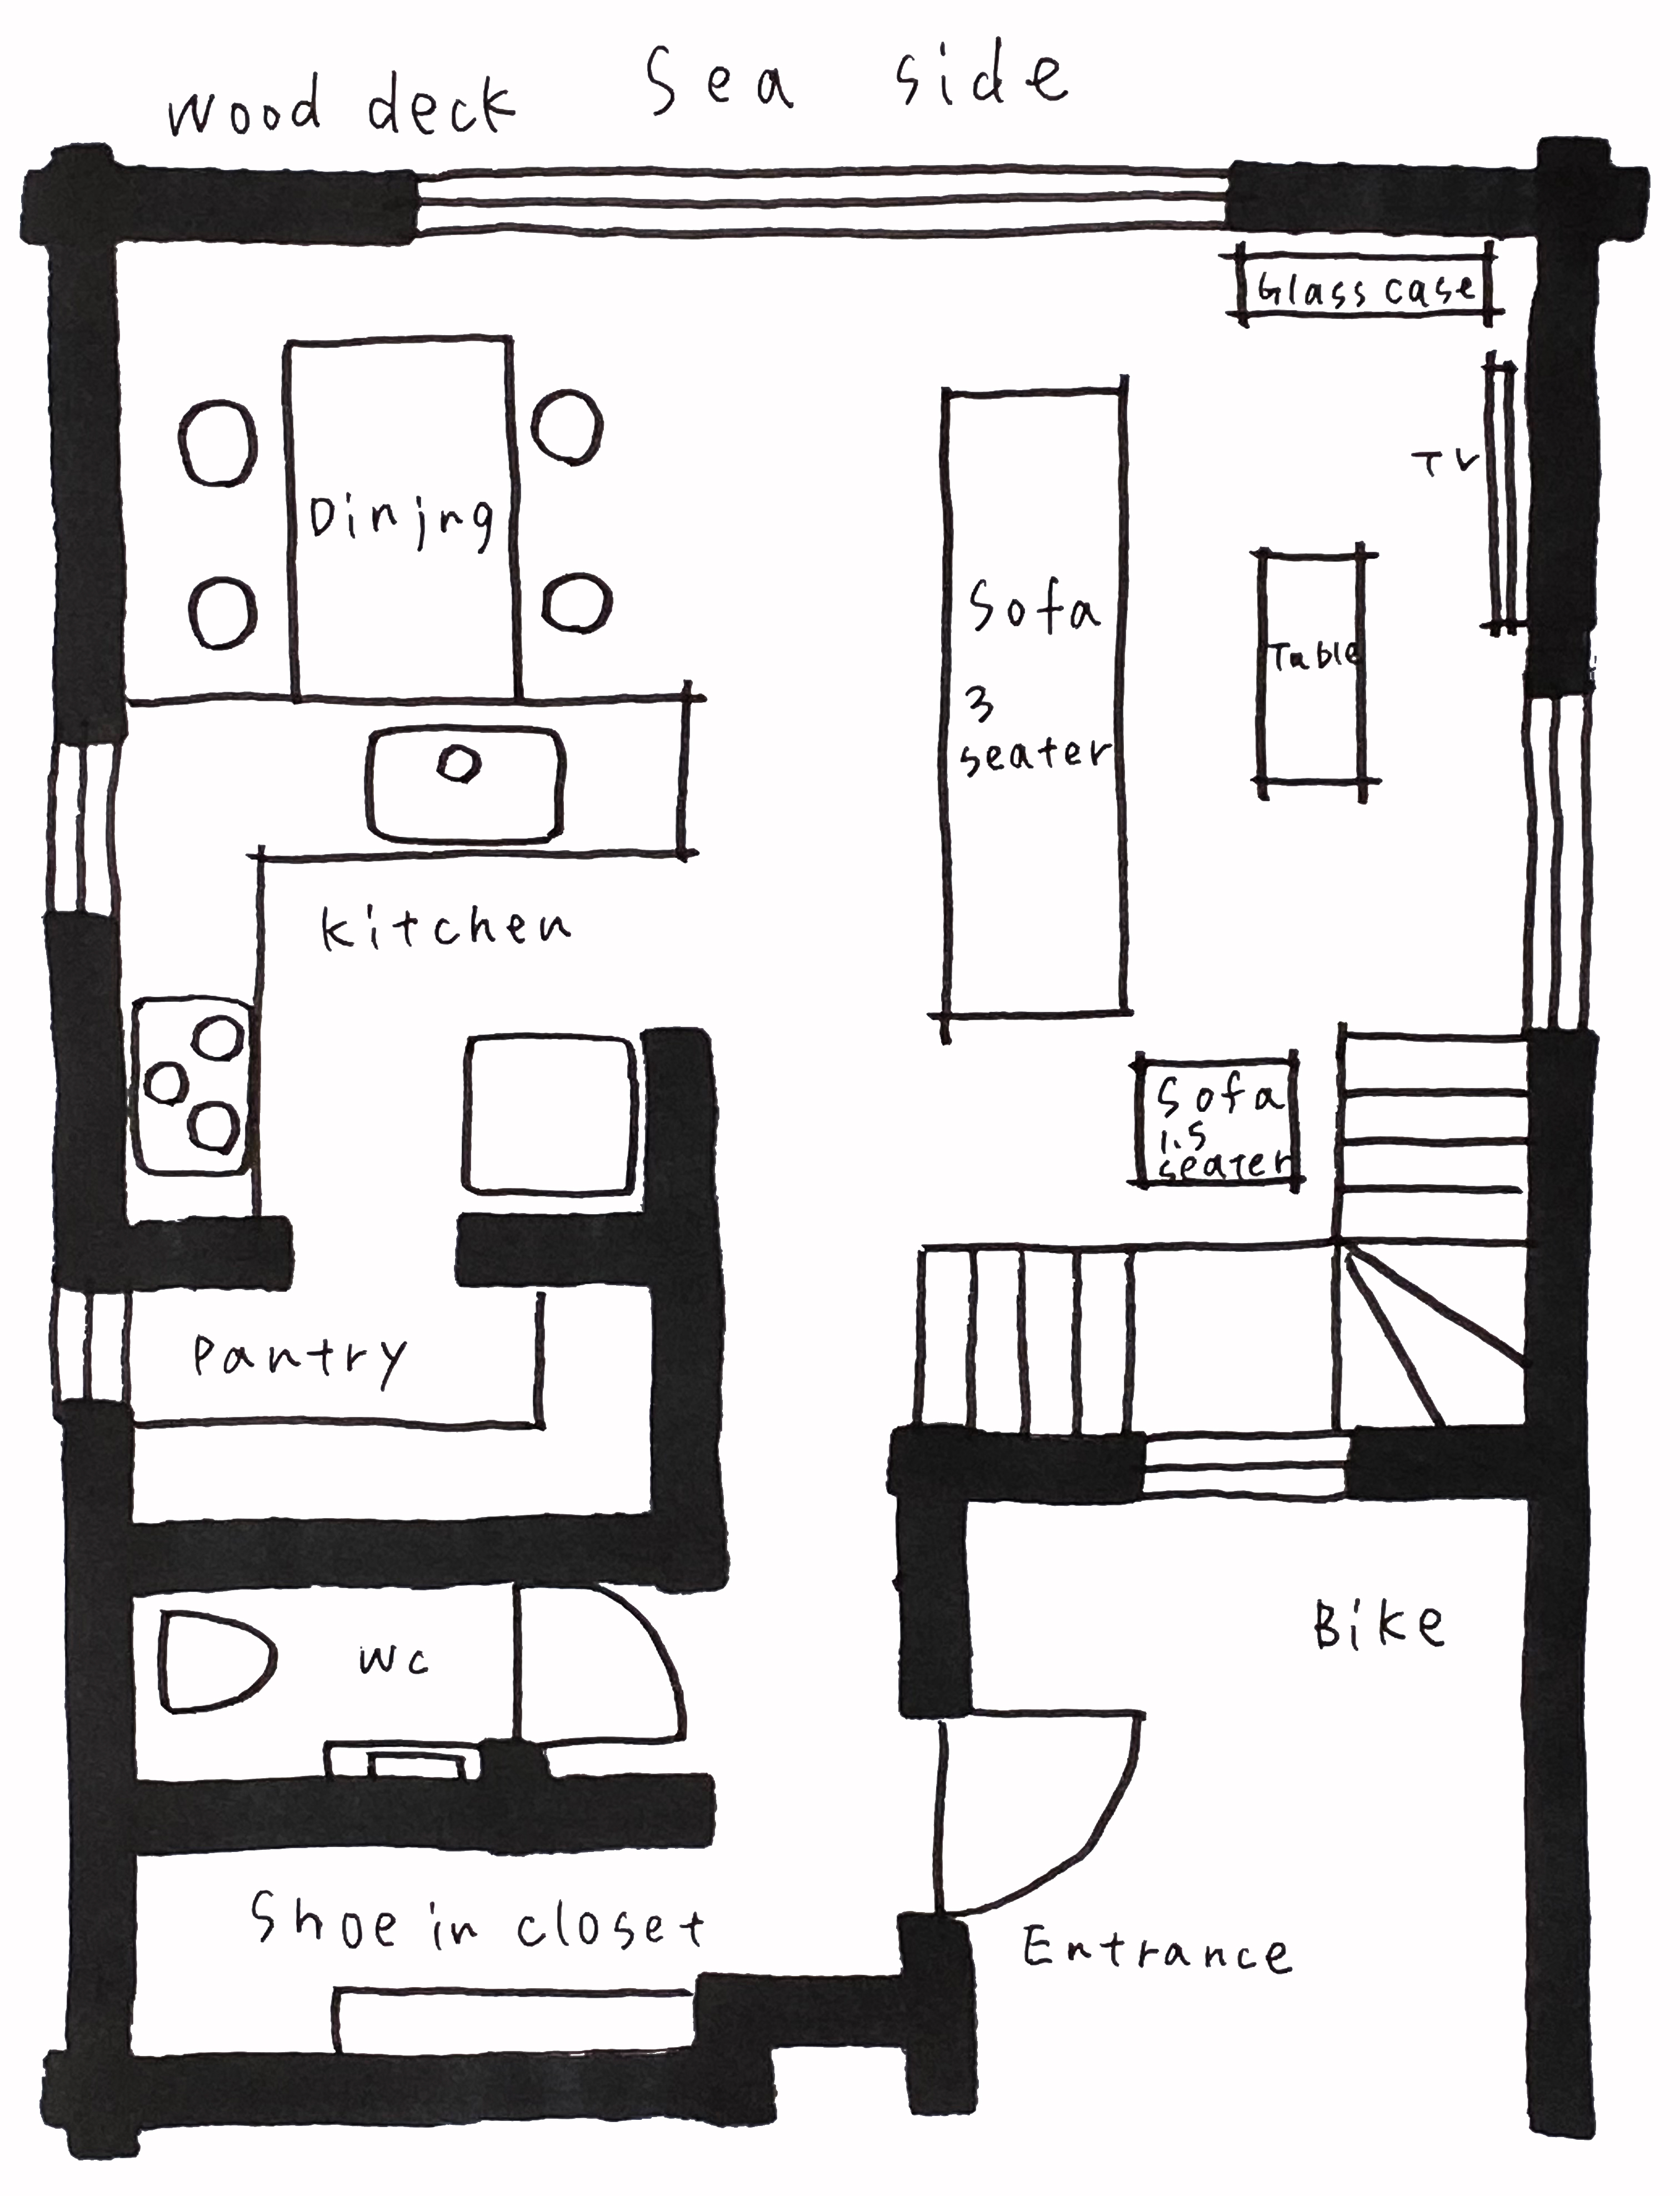 Wood deck
Sea side
Glass case
TV
Dining
Sofa
3
seater
Table
Kitchen
Sofa
1.5
seater
Pantry
WC
Bike
Shoe in closet
Entrance